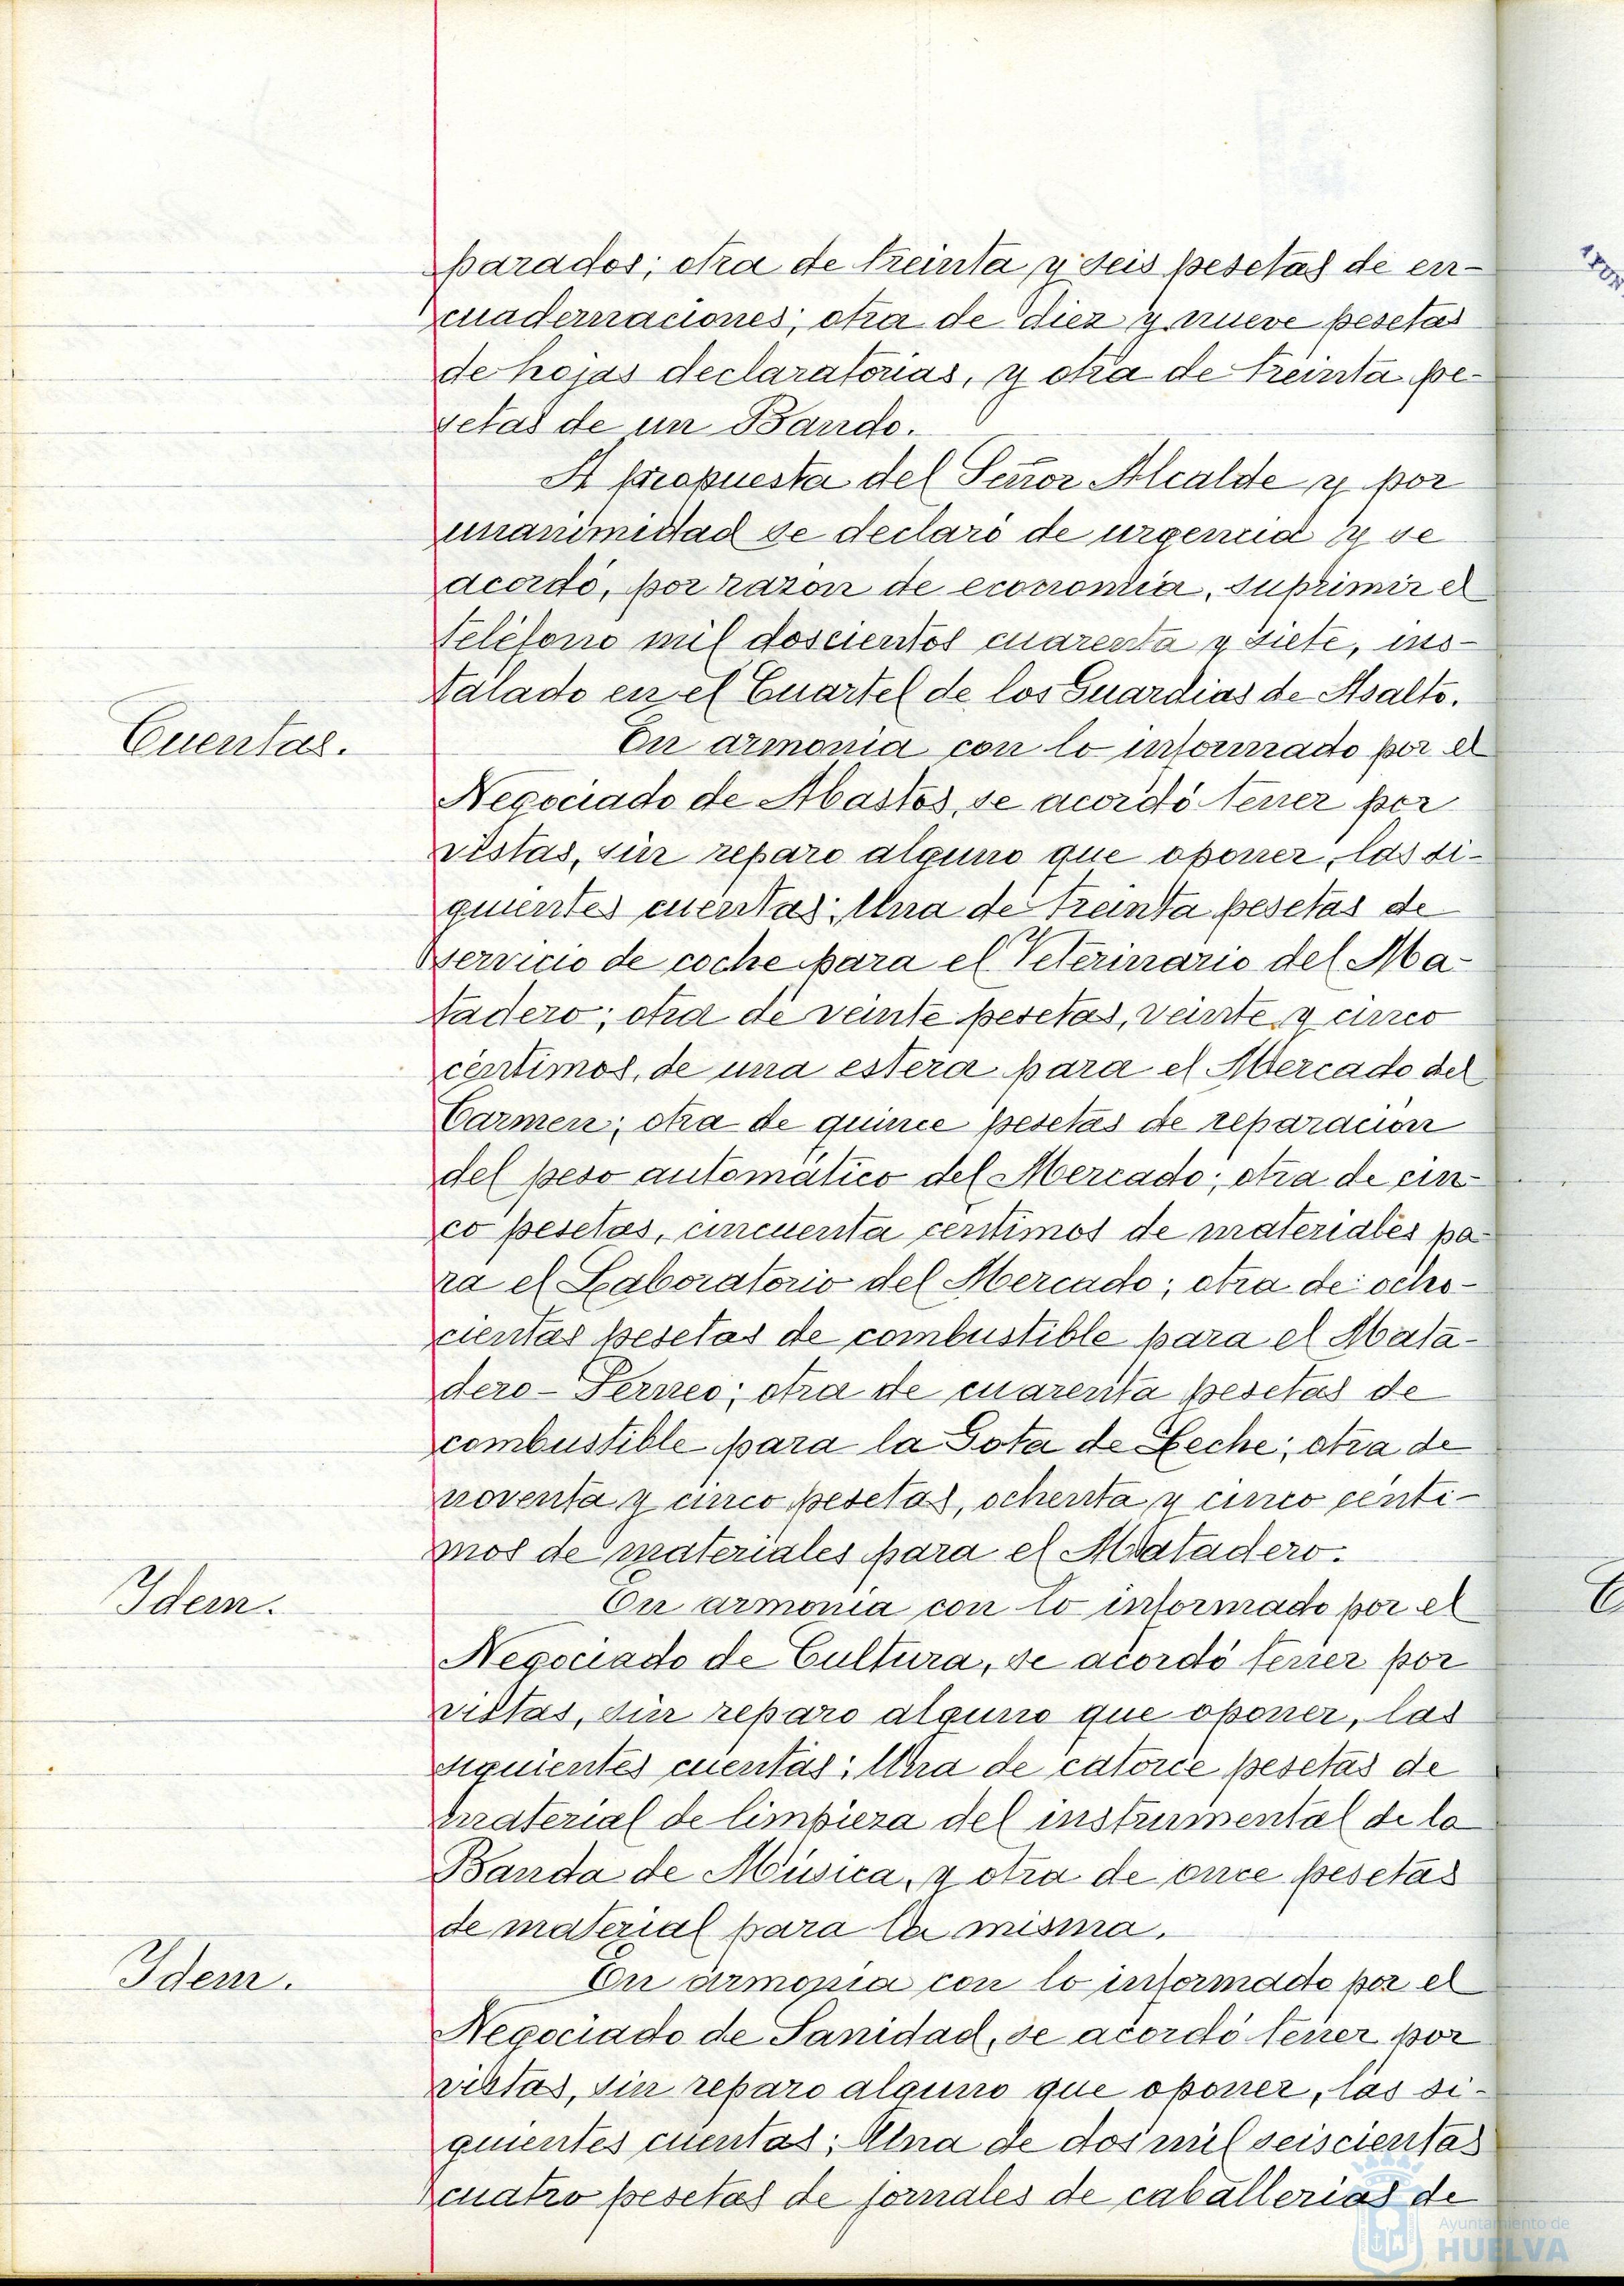 parados; otra de treinta y seis pesetas de en-
cuadernaciones; otra de diez y nueve pesetas
de hojas declaratorias, y otra de treinta pe-
setas de un Bando.
A propuesta del Señor Alcalde y por
unanimidad se declaró de urgencia y se
acordó, por razon de economia, suprimir el
teléfono mil doscientos cuarenta y siete, ins-
talado en el Cuartel de los Guardias de Asalto.
Cuentas.
En armonia con lo informado por el
Negociado de Abastos, se acordó tener por
vistas, sin reparo alguno que oponer, las si-
guientes cuentas: Una de treinta pesetas de
servicio de coche para el Veterinario del Ma-
tadero; otra de veinte pesetas, veinte y cinco
céntimos, de una estera para el Mercado del
Carmen; otra de quince pesetas de reparacion
del peso automático del Mercado; otra de cin-
co pesetas, cincuenta centimos de materiales pa-
ra el Laboratorio del Mercado; otra de ocho-
cientas pesetas de combustible para el Mata-
dero-Perneo; otra de cuarenta pesetas de
combustible para la Gota de Leche; otra de
noventa y cinco pesetas, ochenta y cinco centi-
mos de materiales para el Matadero.
Idem.
En armonia con lo informado por el
Negociado de Cultura, se acordó tener por
vistas, sin reparo alguno que oponer, las
siguientes cuentas: Una de catorce pesetas de
material de limpieza del instrumental de la
Banda de Música, y otra de once pesetas
de material para la misma.
Idem.
En armonia con lo informado por el
Negociado de Sanidad, se acordó tener por
vistas, sin reparo alguno que oponer, las si-
guientes cuentas: Una de dos mil seiscientas
cuatro pesetas de jornales de caballerias de
Ayuntamiento de
HUELVA